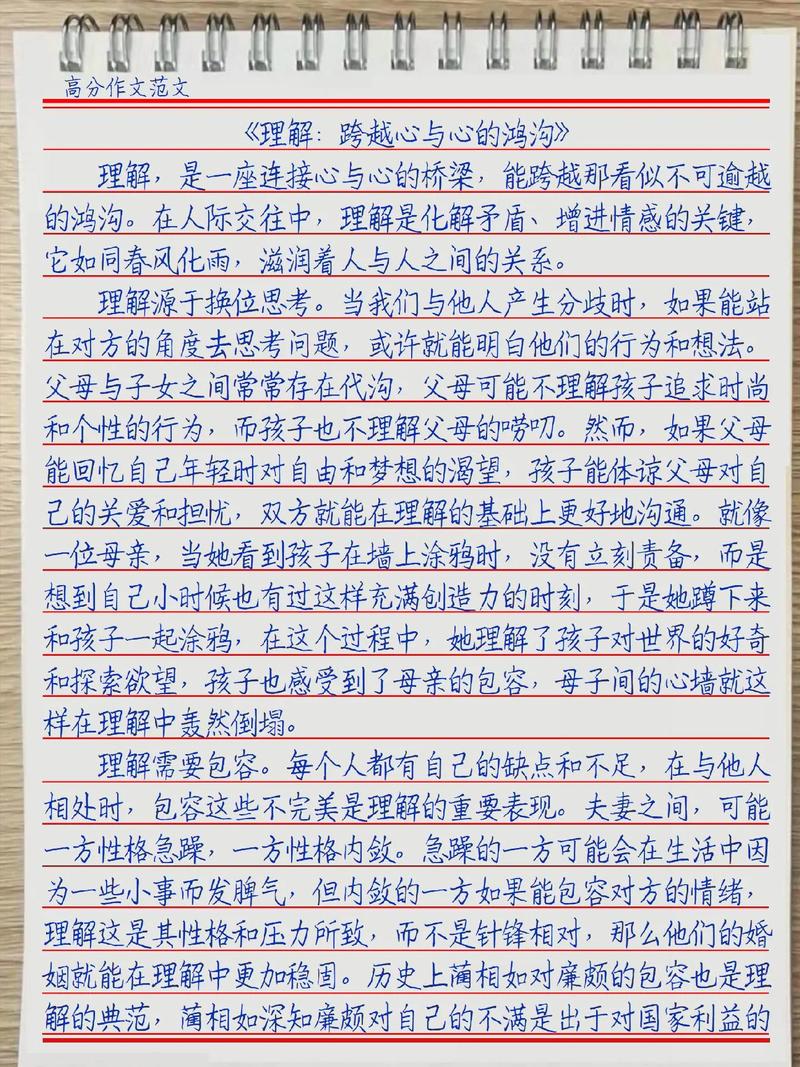 高分作文范文
《理解：跨越心与心的鸿沟》
理解，是一座连接心与心的桥梁，能跨越那看似不可逾越
的鸿沟。在人际交往中，理解是化解矛盾、增进情感的关键，
它如同春风化雨，滋润着人与人之间的关系。
理解源于换位思考。当我们与他人产生分歧时，如果能站
在对方的角度去思考问题，或许就能明白他们的行为和想法。
父母与子女之间常常存在代沟，父母可能不理解孩子追求时尚
和个性的行为，而孩子也不理解父母的唠叨。然而，如果父母
能回忆自己年轻时对自由和梦想的渴望，孩子能体谅父母对自
己的关爱和担忧，双方就能在理解的基础上更好地沟通。就像
一位母亲，当她看到孩子在墙上涂鸦时，没有立刻责备，而是
想到自己小时候也有过这样充满创造力的时刻，于是她蹲下来
和孩子一起涂鸦，在这个过程中，她理解了孩子对世界的好奇
和探索欲望，孩子也感受到了母亲的包容，母子间的心墙就这
样在理解中轰然倒塌。
理解需要包容。每个人都有自己的缺点和不足，在与他人
相处时，包容这些不完美是理解的重要表现。夫妻之间，可能
一方性格急躁，一方性格内敛。急躁的一方可能会在生活中因
为一些小事而发脾气，但内敛的一方如果能包容对方的情绪，
理解这是其性格和压力所致，而不是针锋相对，那么他们的婚
姻就能在理解中更加稳固。历史上蔺相如对廉颇的包容也是理
解的典范，蔺相如深知廉颇对自己的不满是出于对国家利益的